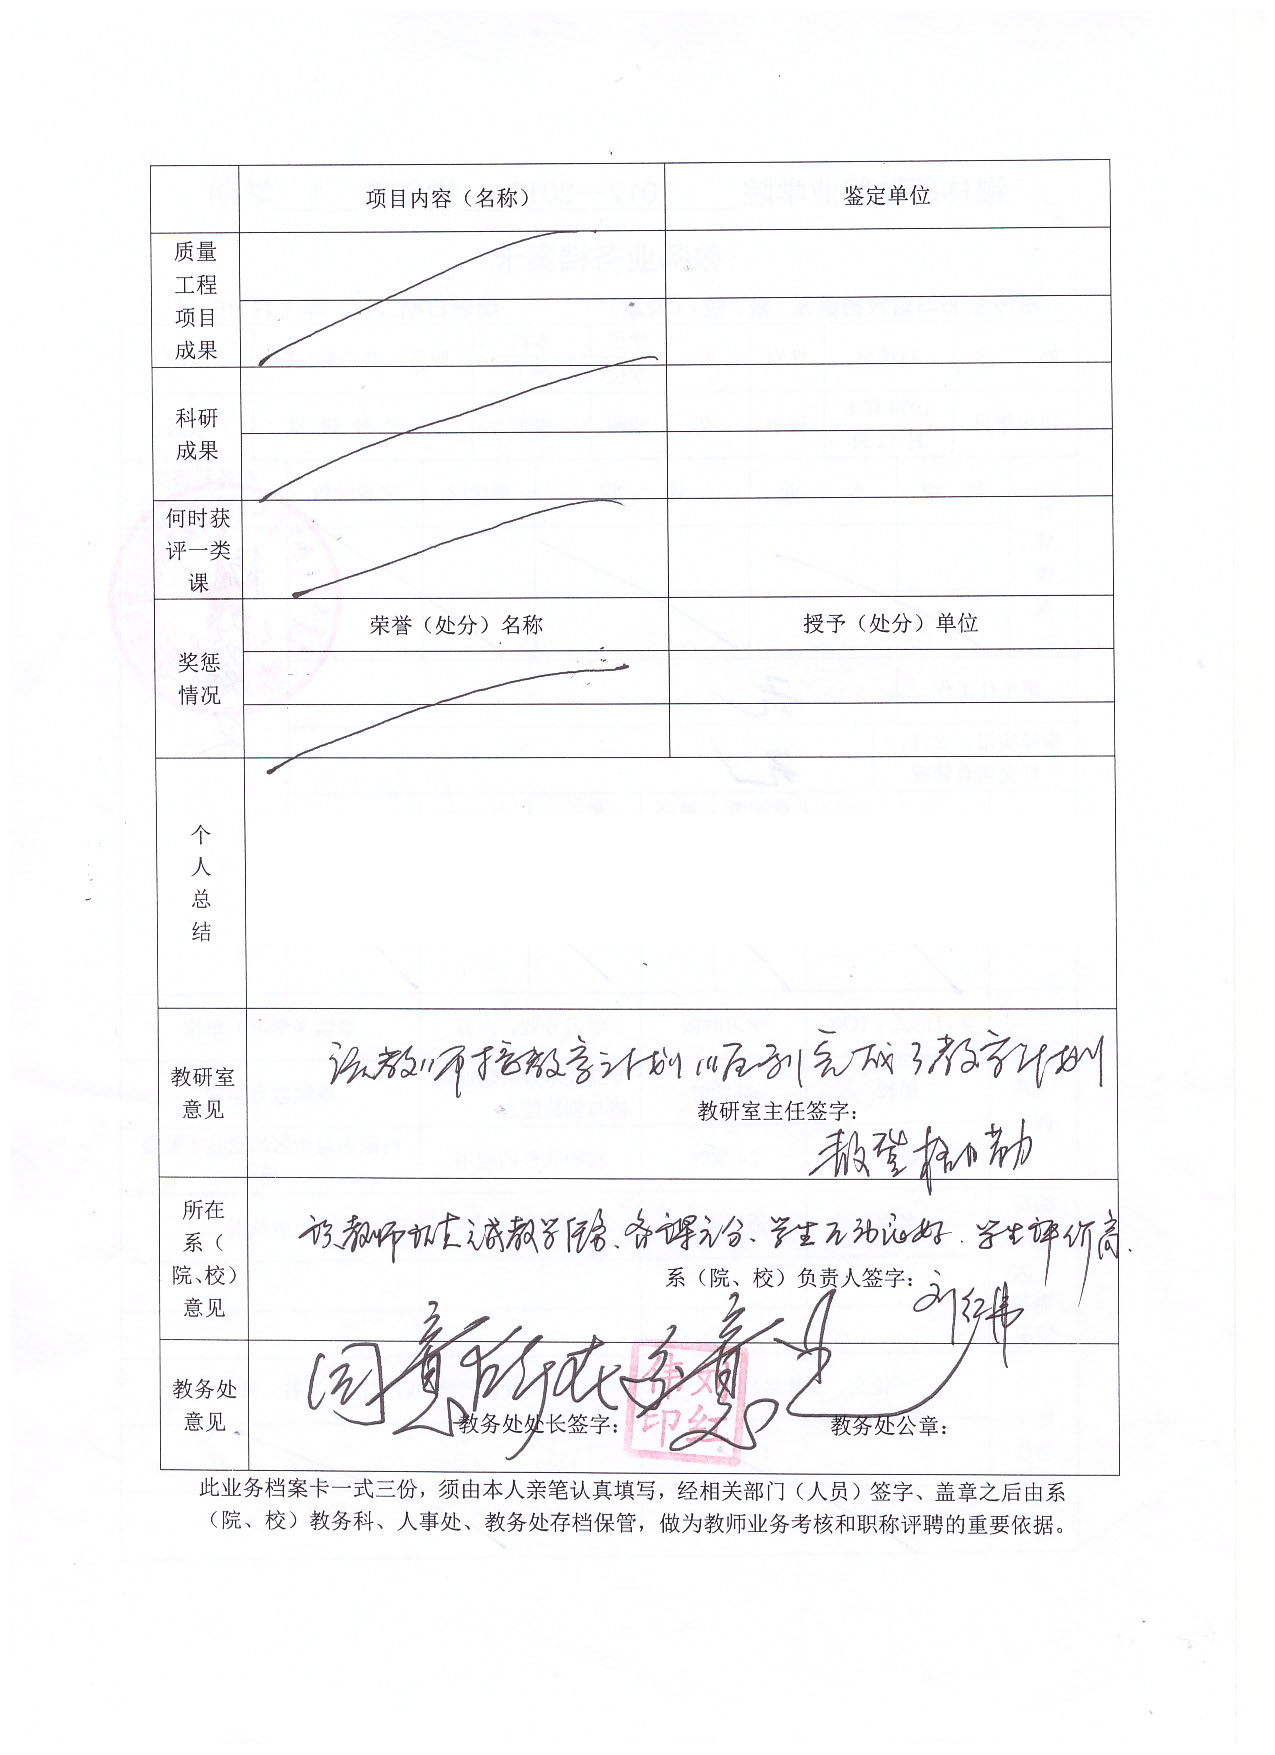 项目内容（名称） 鉴定单位
质量
工程
项目
成果
科研
成果
何时获
评一类
课
荣誉（处分）名称 授予（处分）单位
奖惩
情况
个
人
总
结
教研室
意见
该教师按教学计划顺利完成了教学计划
教研室主任签字：
敖登格日勒
所在
系（
院、校）
意见
该教师认真完成教学任务、备课充分、学生互动良好、学生评价高.
系（院、校）负责人签字：
刘红伟
教务处
意见
同意所在系意见
教务处处长签字：
教务处公章：
刘红伟印
此业务档案卡一式三份，须由本人亲笔认真填写，经相关部门（人员）签字、盖章之后由系
（院、校）教务科、人事处、教务处存档保管，做为教师业务考核和职称评聘的重要依据。